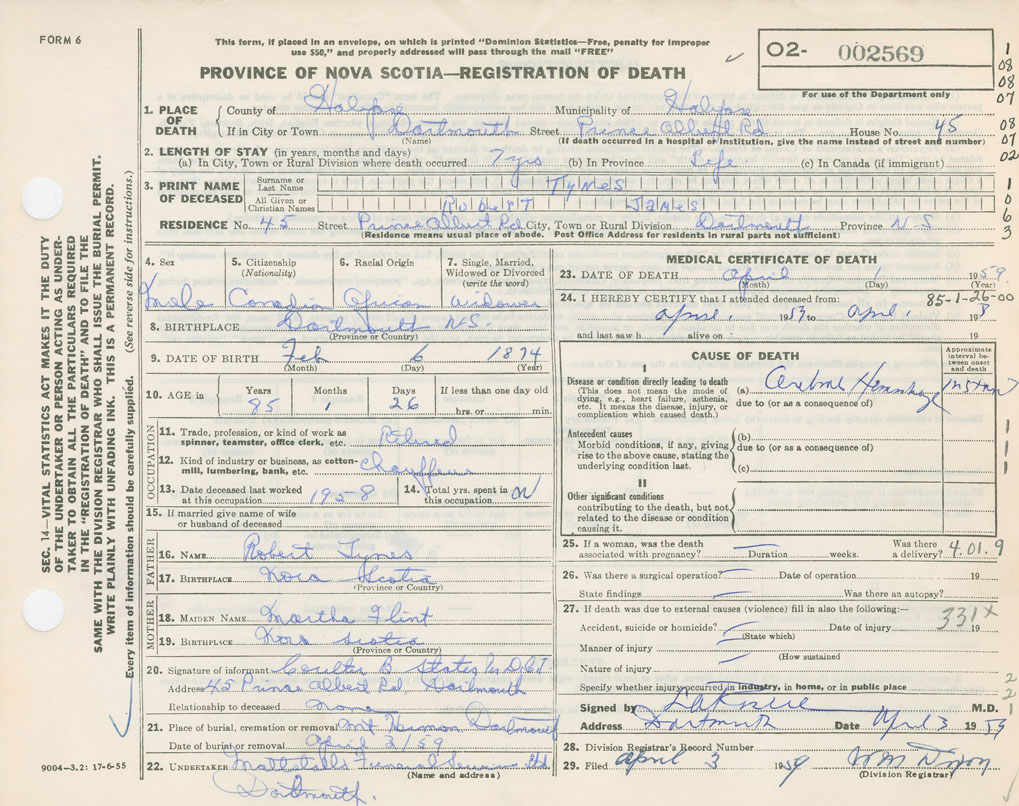 FORM 6
This form, if placed in an envelope, on which is printed "Dominion Statistics—Free, penalty for improper
use $50," and properly addressed will pass through the mail "FREE"
O2- 002569
For use of the Department only
PROVINCE OF NOVA SCOTIA—REGISTRATION OF DEATH
1
08
08
07
08
07
02
1
0
6
3
1. PLACE OF DEATH
County of Halifax Municipality of Halifax
If in City or Town Dartmouth Street Prince Albert Rd. House No. 45
(Name) (If death occurred in a hospital or institution, give the name instead of street and number)
2. LENGTH OF STAY (in years, months and days)
(a) In City, Town or Rural Division where death occurred 7 yrs (b) In Province Life (c) In Canada (if immigrant)
3. PRINT NAME OF DECEASED
Surname or Last Name Tynes
All Given or Christian Names Robert James
RESIDENCE No. 45 Street Prince Albert Rd City, Town or Rural Division Dartmouth Province N-S
(Residence means usual place of abode. Post Office Address for residents in rural parts not sufficient)
4. Sex
male
5. Citizenship
(Nationality)
Canadian
6. Racial Origin
African
7. Single, Married,
Widowed or Divorced
(write the word)
widower
8. BIRTHPLACE Dartmouth N-S.
(Province or Country)
9. DATE OF BIRTH Feb 6 1874
(Month) (Day) (Year)
10. AGE in
Years Months Days If less than one day old
85 1 26 hrs. or min.
OCCUPATION
11. Trade, profession, or kind of work as
spinner, teamster, office clerk, etc. Retired
12. Kind of industry or business, as cotton-
mill, lumbering, bank, etc. Chauffeur
13. Date deceased last worked
at this occupation 1958
14. Total yrs. spent in
this occupation
15. If married give name of wife
or husband of deceased
FATHER
16. NAME Robert Tynes
17. BIRTHPLACE Nova Scotia
(Province or Country)
MOTHER
18. MAIDEN NAME Martha Flint
19. BIRTHPLACE Nova Scotia
(Province or Country)
20. Signature of informant Coulter B. States
Address 45 Prince Albert Rd, Dartmouth
Relationship to deceased none
21. Place of burial, cremation or removal Mt Hermon Dartmouth
Date of burial or removal April 3/59
22. UNDERTAKER Mattatalls Funeral Service Ltd
(Name and address)
Dartmouth.
MEDICAL CERTIFICATE OF DEATH
23. DATE OF DEATH April 1 1959
(Month) (Day) (Year)
85-1-26-00
24. I HEREBY CERTIFY that I attended deceased from:
April, 1957 to April, 198
and last saw h alive on :
CAUSE OF DEATH
Approximate
interval be-
tween onset
and death
I
Disease or condition directly leading to death
(This does not mean the mode of
dying, e.g., heart failure, asthenia,
etc. It means the disease, injury, or
complication which caused death.)
(a) Cerebral Hemorrhage instant
due to (or as a consequence of)
Antecedent causes
Morbid conditions, if any, giving
rise to the above cause, stating the
underlying condition last.
(b)
due to (or as a consequence of)
(c)
1
1
1
II
Other significant conditions
contributing to the death, but not
related to the disease or condition
causing it.
25. If a woman, was the death
associated with pregnancy? — Duration weeks. Was there
a delivery? 4.01.9
26. Was there a surgical operation? — Date of operation 19
State findings — Was there an autopsy?
27. If death was due to external causes (violence) fill in also the following:—
331X
Accident, suicide or homicide? — Date of injury 19
(State which)
Manner of injury —
(How sustained
Nature of injury —
Specify whether injury occurred in industry, in home, or in public place
2
2
1
Signed by M.D.
Address Dartmouth Date April 3 1959
28. Division Registrar's Record Number
29. Filed April 3 1959 WM Dixon
(Division Registrar)
SEC. 14—VITAL STATISTICS ACT MAKES IT THE DUTY
OF THE UNDERTAKER OR PERSON ACTING AS UNDER-
TAKER TO OBTAIN ALL THE PARTICULARS REQUIRED
IN THE "REGISTRATION OF DEATH" AND TO FILE THE
SAME WITH THE DIVISION REGISTRAR WHO SHALL ISSUE THE BURIAL PERMIT.
WRITE PLAINLY WITH UNFADING INK. THIS IS A PERMANENT RECORD.
Every item of information should be carefully supplied. (See reverse side for instructions.)
9004-3.2: 17-6-55